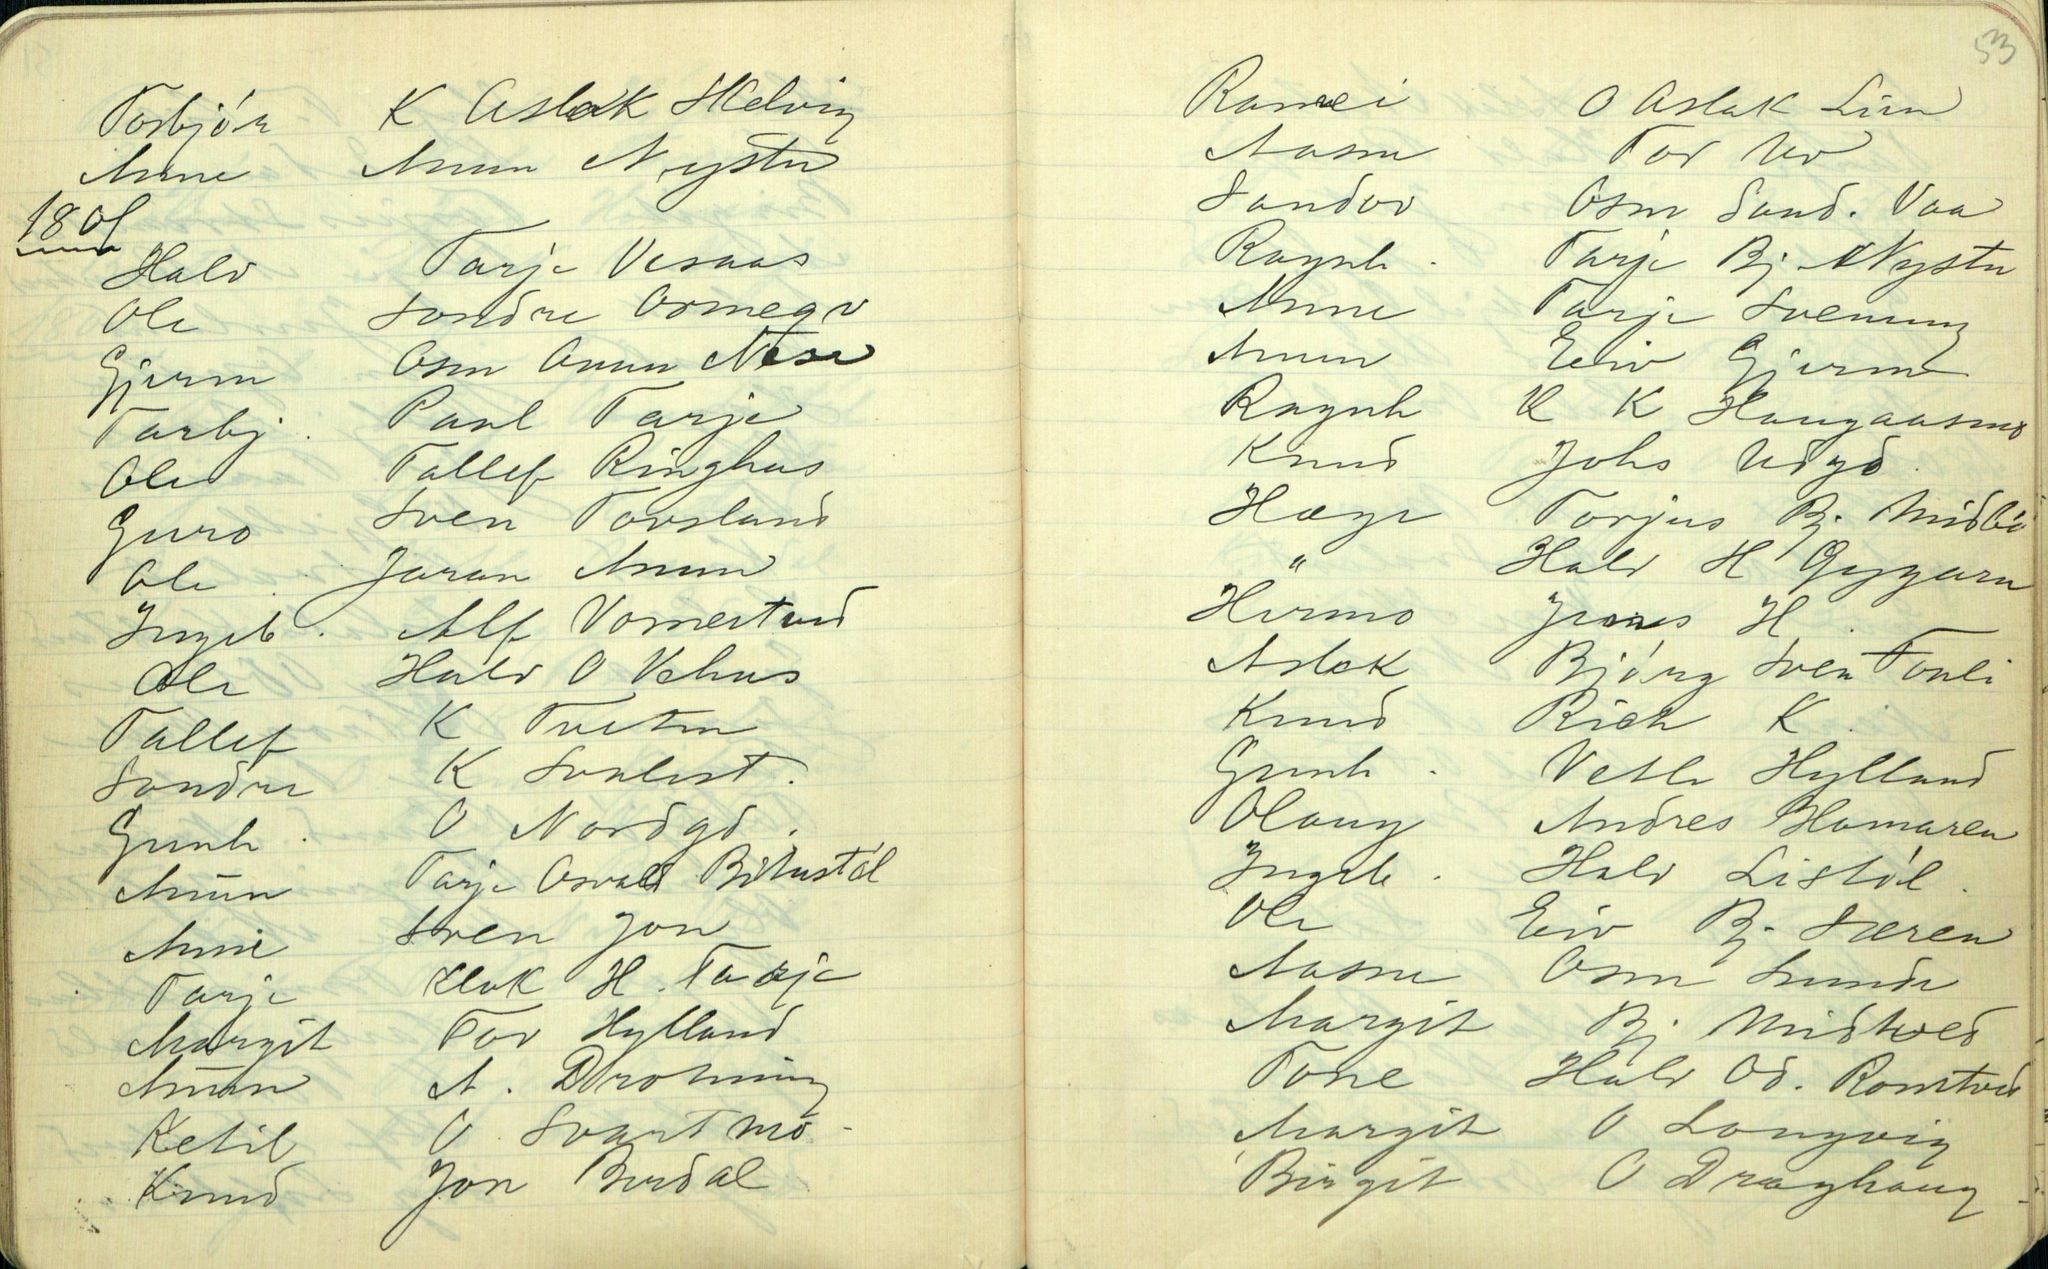 53
Torbjón K Aslak Skelvig
Anne Anun Nystu
1801
Halv Tarje Vesaas
Ole Sondre Ormegv
Gjerm Osm Onun Nese
Tarbj. Paul Tarje
Ole Tallef Ringhus
Guro Sven Tovsland
Ole Joran Anun
Ingeb. Alf Vometveid
Ole Halv O Vehus
Tallef K Tveitm
Sondre K Svalest.
Gunh. O Nordgd.
Anun Tarje Osvald Bitustól
Anne Sven Jon
Tarje H. Tarje
Margit Tov Hylland
Anun A. Drotning
Ketil O Svartmo
Knud Jon Berdal
Ramvei O Aslak Lien
Aasne Tov Uv
Sondov Osm Sond. Vaa
Raynh. Tarje Bj. Nystu
Anne Tarje Svenung
Anun Eiv Gjerm
Raynh K K Haugaasmo
Knud Johs Udgd.
Hæge Torjus Bj. Midbó
" Halv H Gygarn
Hermo H.
Aslak Bjórg Sven Tonli
Knud Rich K.
Gunh. Vetle Hylland
Olaug Andres Hamaren
Ingeb. Halv Listól.
Ole Eiv Bj. Særen
Aasne Osm Sunde
Margit Bj. Midtved
Tone Halv Od. Romtveid
Margit O Longvig
Birgit O Draghaug